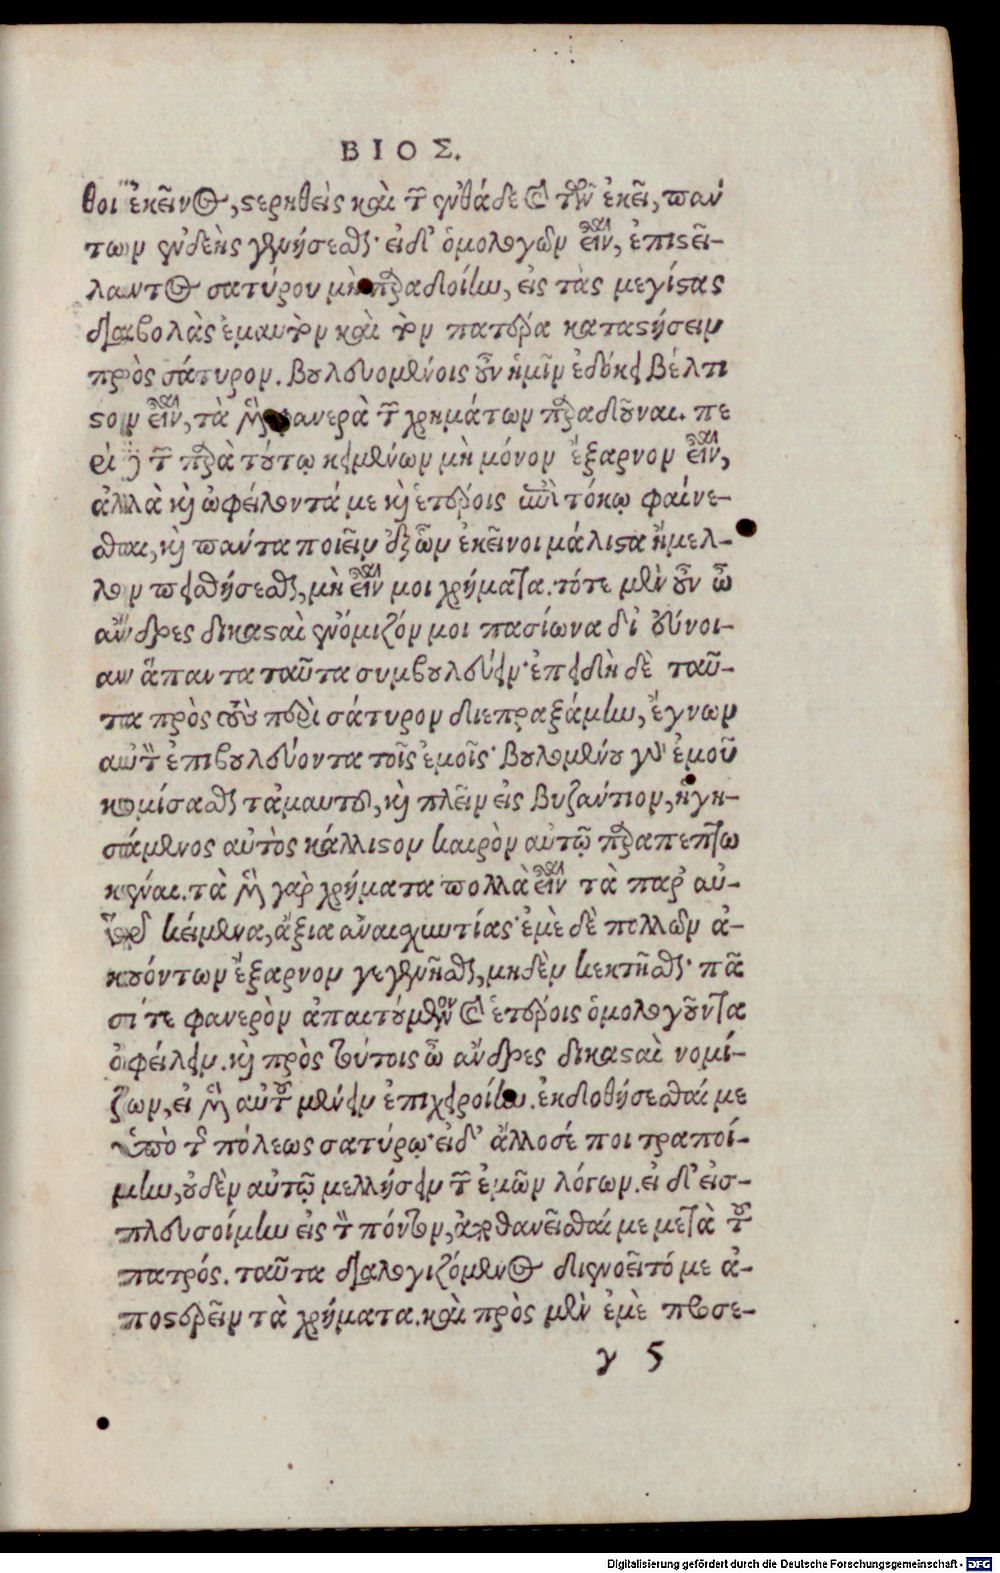 ΒΙΟΣ.
θοι ἐκεῖνος, στερηθεὶς καὶ τῶν ἐνθάδε καὶ τῶν ἐκεῖ, πάν
των ἐνδεὴς γενήσεσθαι· εἰ δ' ὁμολογῶν εἶναι, ἐπιστεί-
λαντος σατύρου μὴ παραδοίην, εἰς τὰς μεγίστας
διαβολὰς ἐμαυτὸν καὶ τὸν πατέρα καταστήσειν
πρὸς σάτυρον. βουλευομένοις οὖν ἡμῖν ἐδόκει βέλτι
στον εἶναι, τὰ μὲν φανερὰ τῶν χρημάτων παραδοῦναι. πε
ρὶ δὲ τῶν παρὰ τούτῳ κειμένων μὴ μόνον ἔξαρνον εἶναι,
ἀλλὰ καὶ ὠφείλοντά με καὶ ἑτέροις ἐπὶ τόκῳ φαίνε-
σθαι, καὶ πάντα ποιεῖν ἐξ ὧν ἐκεῖνοι μάλιστα ἤμελ-
λον πεισθήσεσθαι, μὴ εἶναι μοι χρήματα. τότε μὲν οὖν ὦ
ἄνδρες δικασταὶ ἐνόμιζόν μοι πασίωνα δι' εὔνοι-
αν ἅπαντα ταῦτα συμβουλεύειν· ἐπειδὴ δὲ ταῦ-
τα πρὸς τοὺς περὶ σάτυρον διεπραξάμην, ἔγνων
αὐτὸν ἐπιβουλεύοντα τοῖς ἐμοῖς· βουλομένου γὰρ ἐμοῦ
κομίσασθαι τἀμαυτοῦ, καὶ πλεῖν εἰς Βυζάντιον, ἡγη-
σάμενος αὐτὸς κάλλιστον καιρὸν αὐτῷ παραπεπτω
κέναι. τὰ μὲν γὰρ χρήματα πολλὰ εἶναι τὰ παρ' αὐ-
τοῦ κείμενα, ἄξια ἀναισχυντίας· ἐμὲ δὲ πολλῶν ἀ-
κουόντων ἔξαρνον γεγενῆσθαι, μηδὲν κεκτῆσθαι· πᾶ
σί τε φανερὸν ἀπαιτούμενον καὶ ἑτέροις ὁμολογοῦντα
ὀφείλειν. καὶ πρὸς τούτοις ὦ ἄνδρες δικασταὶ νομί-
ζων, εἰ μὲν αὐτοῦ μένειν ἐπιχειροίην. ἐκδοθήσεσθαί με
ὑπὸ τῆς πόλεως σατύρῳ· εἰ δ' ἄλλοσέ ποι τραποί-
μην, οὐδὲν αὐτῷ μελλήσειν τῶν ἐμῶν λόγων. εἰ δ' εἰσ-
πλευσοίμην εἰς τὸν πόντον, ἀποθανεῖσθαί με μετὰ τοῦ
πατρός. ταῦτα διαλογιζόμενος διενοεῖτό με ἀ-
ποστερεῖν τὰ χρήματα. καὶ πρὸς μὲν ἐμὲ προσε-
γ 5
Digitalisierung gefördert durch die Deutsche Forschungsgemeinschaft - DFG